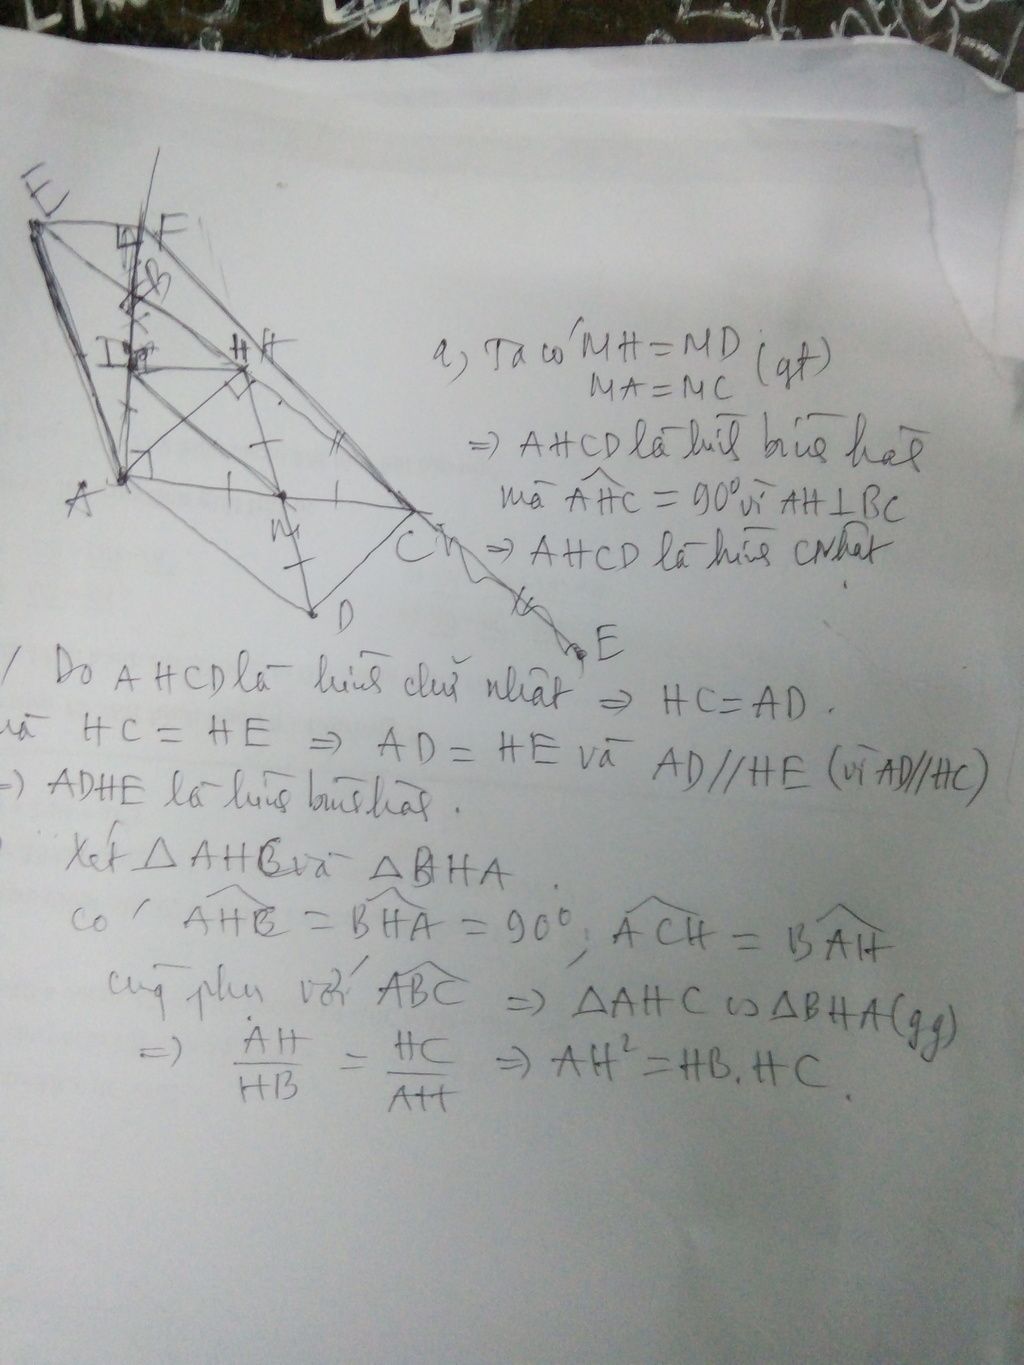 E
F
B
I
H
A
M
C
D
E
a, Ta có MH = MD (gt)
MA = MC
=> AHCD là hình bình hành
mà AHC = 90° vì AH ⊥ BC
=> AHCD là hình CNhật
/ Do AHCD là hình chữ nhật => HC = AD.
mà HC = HE => AD = HE và AD // HE (vì AD // HC)
=> ADHE là hình bình hành.
Xét Δ AHC và Δ BHA
có AHC = BHA = 90°; ACH = BAH
cùng phụ với ABC => ΔAHC ∽ ΔBHA (gg)
=> AH/HB = HC/AH => AH² = HB.HC.